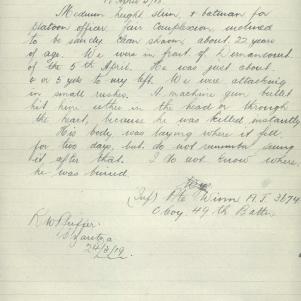 April 5/18
Medium height slim, & batman for
platoon officer fair complexion, inclined
to be sandy clean shaven, about 22 years
of age. We were in front of Dernancourt
of the 5th April. He was just about
2 or 3 yds to my left. We were attacking
in small rushes. A machine gun bullet
hit him either in the head or through
the heart, because he was killed instantly
His body was laying where it fell
for two days, but do not remember seeing
it after that. I do not know where
he was buried.
Pte Winn A.J. 3674
C Coy 49th Batt.
24/3/19.